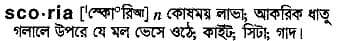 sco·ria [ˈস্কোºরিআ] n কোষময় লাভা; আকরিক ধাতু
গলালে উপরে যে মল ভেসে ওঠে; কাইট; সিটা; গাদ।